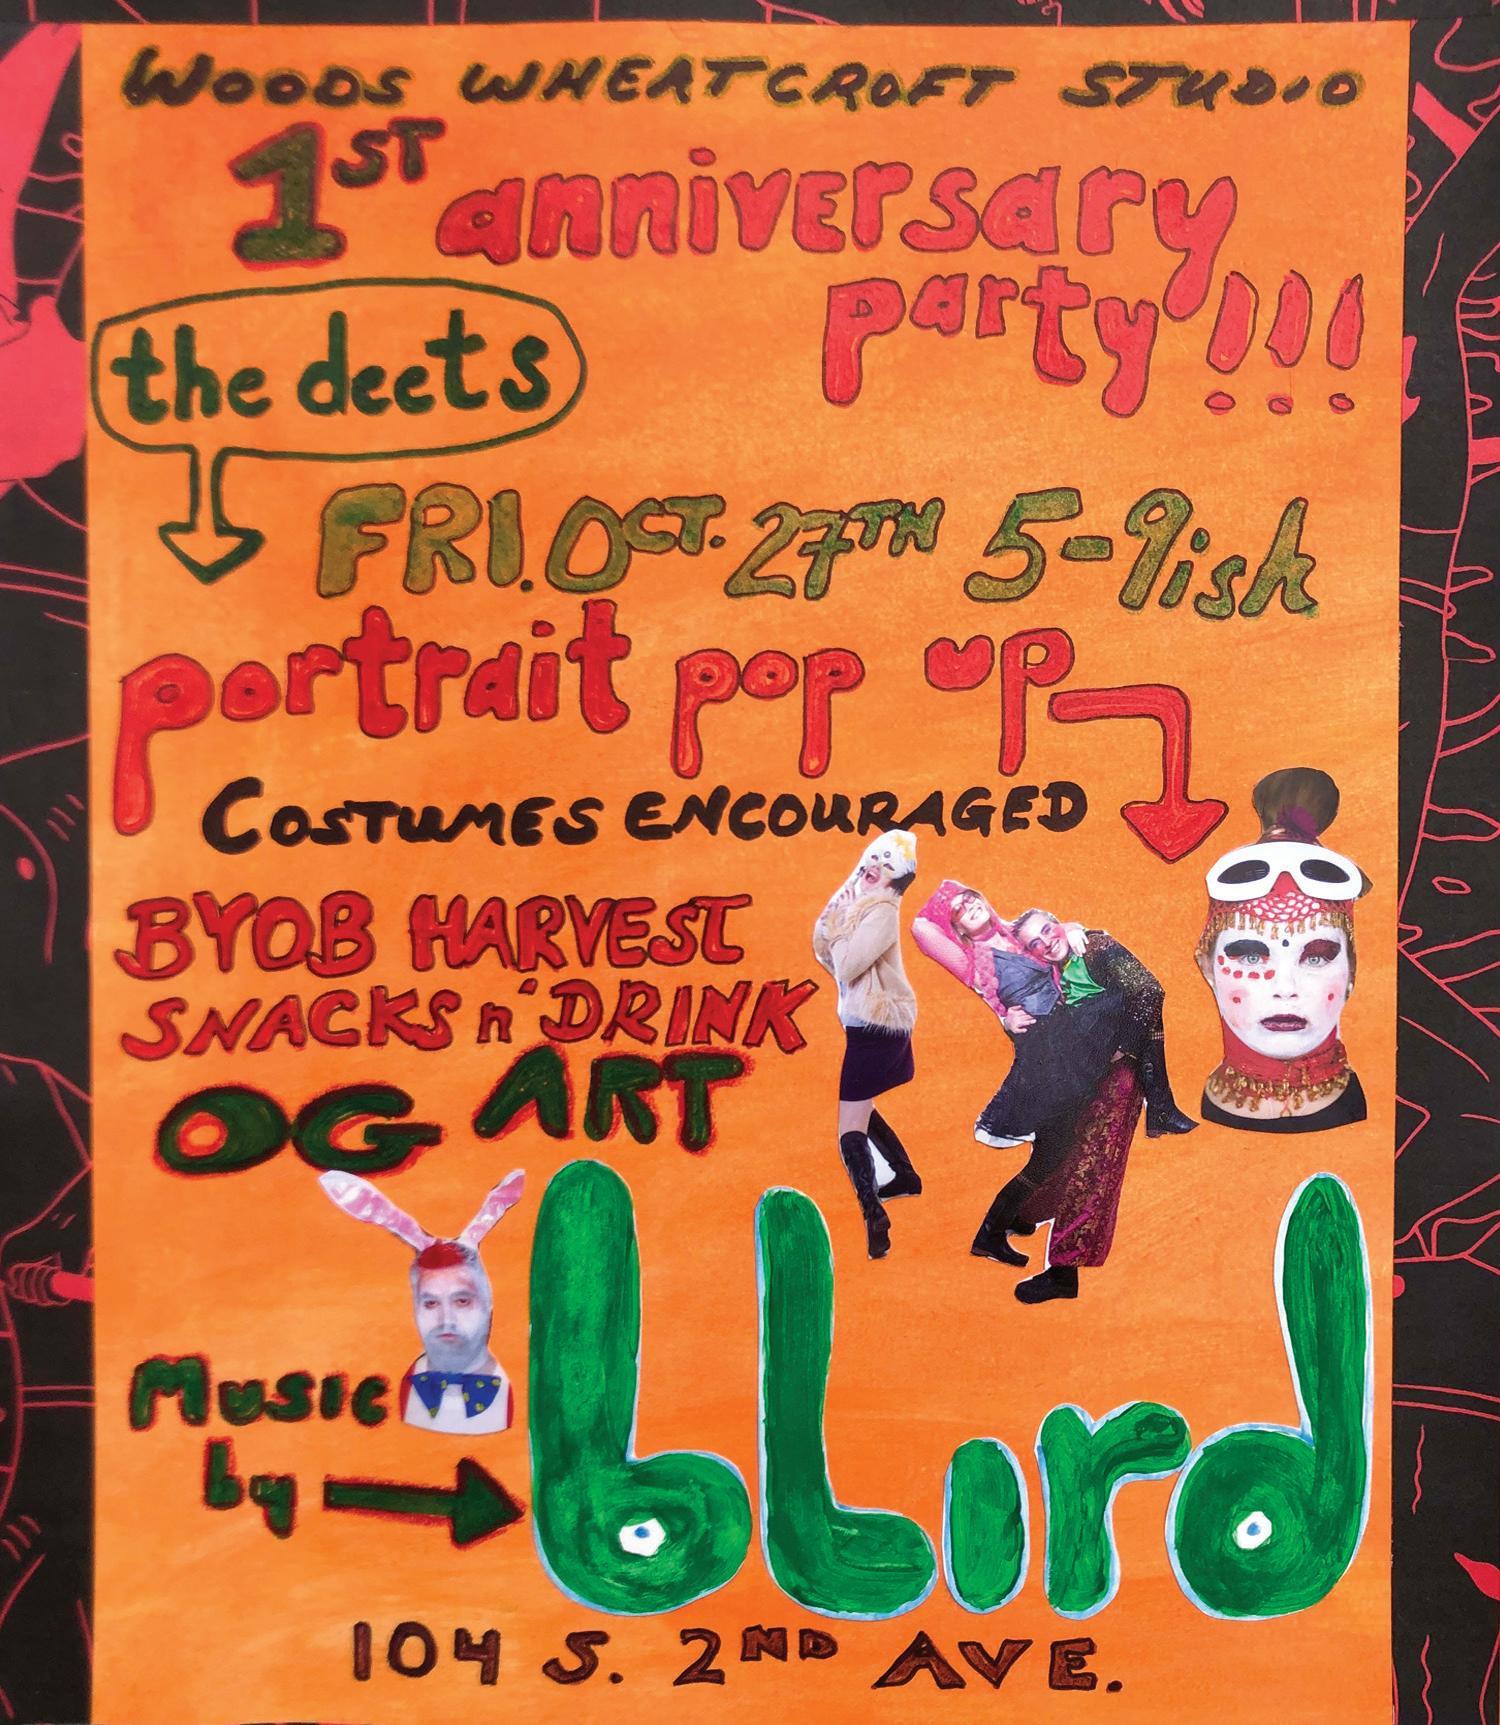 WOODS WHEATCROFT STUDIO
1ST anniversary
party!!!
the deets
FRI. OCT. 27TH 5-9ish
portrait pop up
COSTUMES ENCOURAGED
BYOB HARVEST
SNACKS n' DRINK
OG ART
Music
by
bLird
104 S. 2ND AVE.